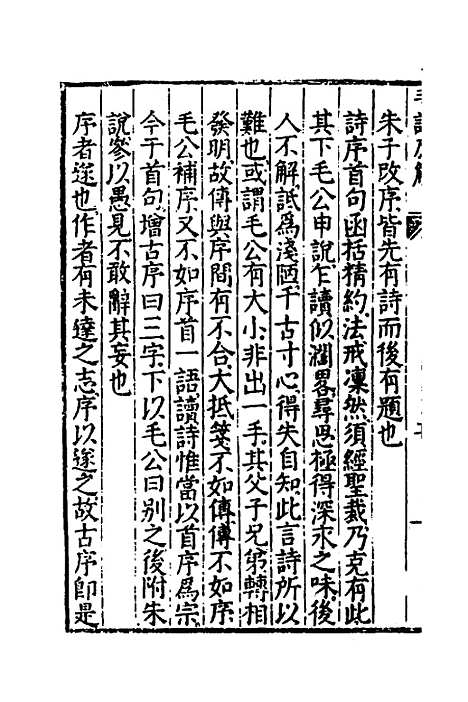 朱子改序皆先有詩而後有題也
詩序首句函括精約法戒凜然須經聖裁乃克有此
其下毛公申說乍讀似濶畧尋思極得深永之味後
人不解詆爲淺陋千古寸心得失自知此言詩所以
難也或謂毛公有大小非出一手其父子兄弟轉相
發明故傳與序間有不合大抵箋不如傳傳不如序
毛公補序又不如序首一語讀詩惟當以首序爲宗
今于首句增古序曰三字下以毛公曰别之後附朱
說參以愚見不敢辭其妄也
序者遂也作者有未達之志序以遂之故古序卽是